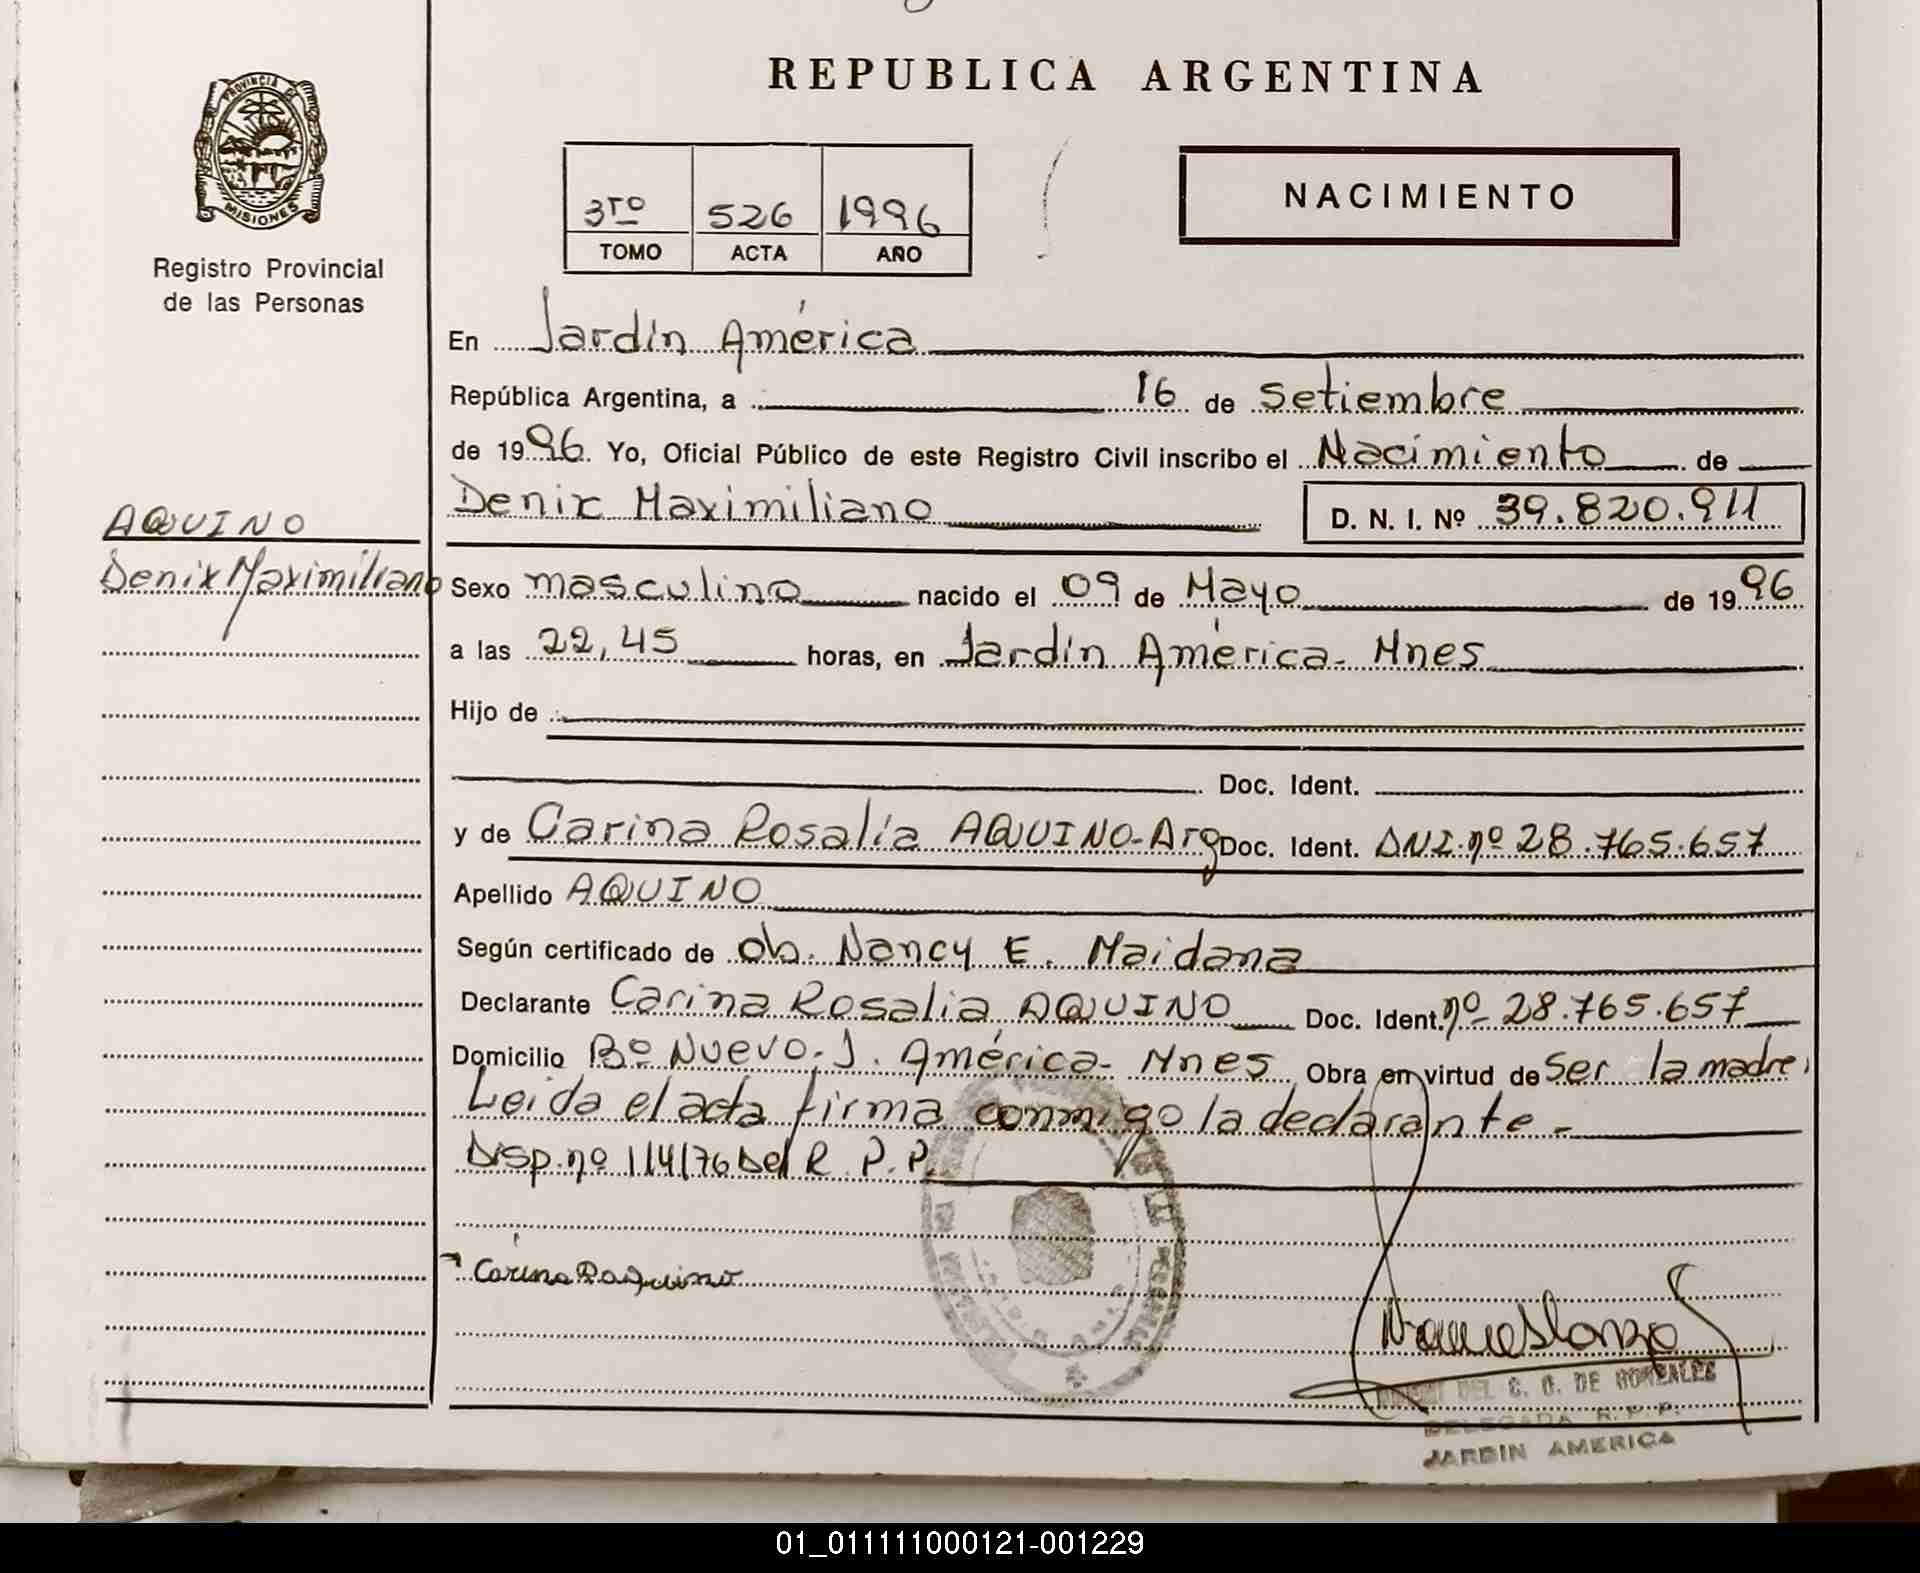 REPUBLICA ARGENTINA
PROVINCIA DE
MISIONES
Registro Provincial
de las Personas
3ro 526 1996
TOMO ACTA AÑO
NACIMIENTO
En Jardín América
República Argentina, a 16 de Setiembre
de 1996. Yo, Oficial Público de este Registro Civil inscribo el Nacimiento de
Denix Maximiliano D. N. I. Nº 39.820.911
AQUINO
Denix Maximiliano
Sexo masculino nacido el 09 de Mayo de 1996
a las 22,45 horas, en Jardín América- Mnes
Hijo de
Doc. Ident.
y de Carina Rosalía AQUINO-Arg Doc. Ident. DNI.nº 28.765.657
Apellido AQUINO
Según certificado de ob. Nancy E. Maidana
Declarante Carina Rosalia AQUINO Doc. Ident. nº 28.765.657
Domicilio Bº Nuevo. J. América- Mnes Obra en virtud de Ser la madre,
Leida el acta firma conmigo la declarante.-
Disp. nº 114/76 Del R. P. P.
Carina R Aquino
DEL C. G. DE GONZALEZ
DELEGADA R. P. P.
JARDIN AMERICA
01_011111000121-001229